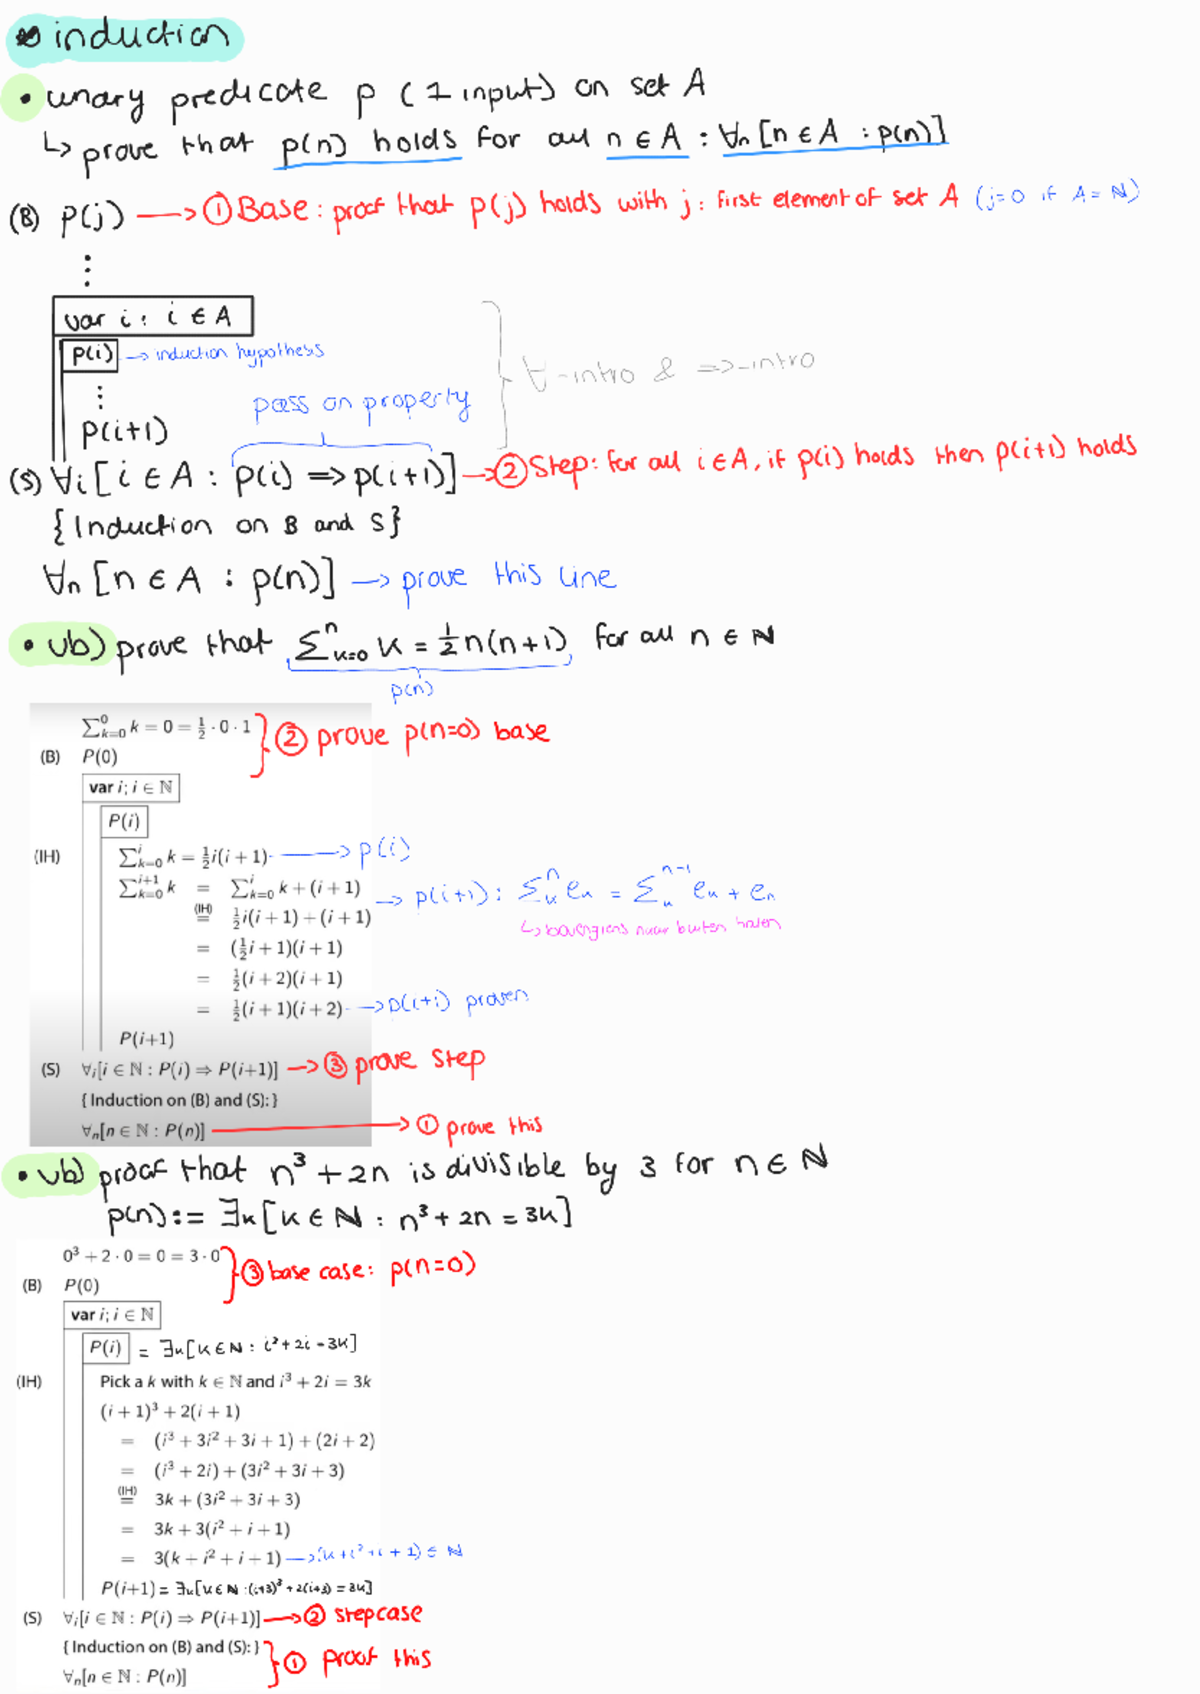 induction
• unary predicate p (1 input) on set A
↳ prove that p(n) holds for all n ∈ A : ∀n [n ∈ A : p(n)]
(B) p(j) → ① Base: proof that p(j) holds with j: first element of set A (j=0 if A = ℕ)
⋮
var i: i ∈ A
p(i) → induction hypothesis
∀-intro & =>-intro
⋮
pass on property
p(i+1)
(S) ∀i [i ∈ A : p(i) => p(i+1)] → ② Step: for all i ∈ A, if p(i) holds then p(i+1) holds
{Induction on B and S}
∀n [n ∈ A : p(n)] → prove this line
• vb) prove that ∑ⁿₖ₌₀ k = ½n(n+1) for all n ∈ ℕ
p(n)
∑⁰ₖ₌₀ k = 0 = ½ · 0 · 1
② prove p(n=0) base
(B) P(0)
var i; i ∈ ℕ
P(i)
(IH) ∑ⁱₖ₌₀ k = ½i(i + 1) → p(i)
∑ⁱ⁺¹ₖ₌₀ k = ∑ⁱₖ₌₀ k + (i + 1) → p(i+1): ∑ₖⁿ eₖ = ∑ₖⁿ⁻¹ eₖ + eₙ
(IH) = ½i(i + 1) + (i + 1) ↳ bovengrens naar buiten halen
= (½i + 1)(i + 1)
= ½(i + 2)(i + 1)
= ½(i + 1)(i + 2) → p(i+1) proven
P(i+1)
(S) ∀i[i ∈ ℕ : P(i) ⇒ P(i+1)] → ③ prove step
{ Induction on (B) and (S): }
∀n[n ∈ ℕ : P(n)] → ① prove this
• vb) proof that n³ + 2n is divisible by 3 for n ∈ ℕ
p(n) := ∃k [k ∈ ℕ : n³ + 2n = 3k]
0³ + 2 · 0 = 0 = 3 · 0
③ base case: p(n=0)
(B) P(0)
var i; i ∈ ℕ
P(i) = ∃k [k ∈ ℕ : i³ + 2i = 3k]
(IH) Pick a k with k ∈ ℕ and i³ + 2i = 3k
(i + 1)³ + 2(i + 1)
= (i³ + 3i² + 3i + 1) + (2i + 2)
= (i³ + 2i) + (3i² + 3i + 3)
(IH) = 3k + (3i² + 3i + 3)
= 3k + 3(i² + i + 1)
= 3(k + i² + i + 1) → (k + i² + i + 1) ∈ ℕ
P(i+1) = ∃k [k ∈ ℕ : (i+3)³ + 2(i+3) = 3k]
(S) ∀i[i ∈ ℕ : P(i) ⇒ P(i+1)] → ② stepcase
{ Induction on (B) and (S): }
① proof this
∀n[n ∈ ℕ : P(n)]